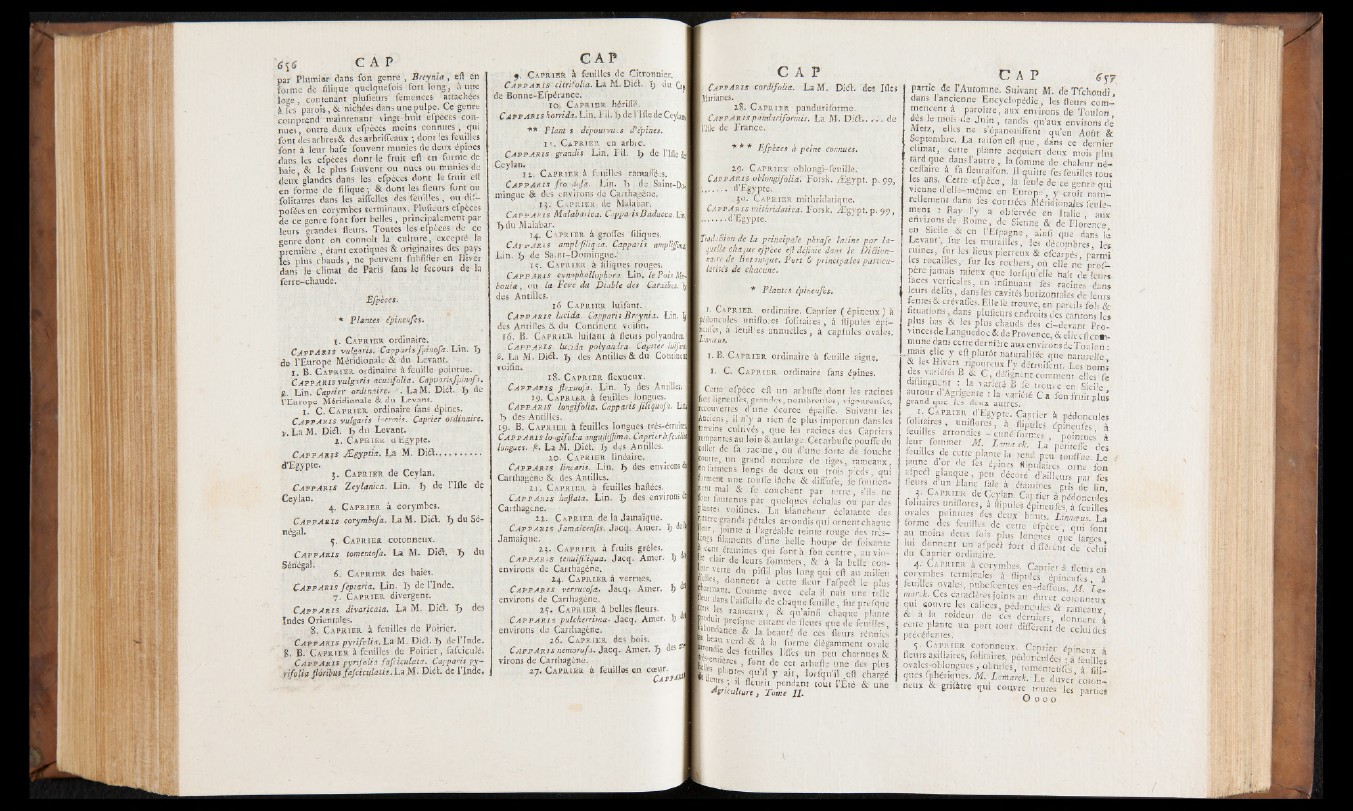 656 CAP
par Plumier dans son genre, Breynia, est en
forme de silique quelquefois fort long, à une
loge, contenant plusieurs semences attachées
à ses parois, & nichées dans une pulpe. Ce genre
comprend maintenant vingt-huit espèces con-
nues, outre deux espèces moins connues, qui
sont des arbres & des arbrisseaux; dont les feuilles
sont à leur base souvent munies de deux épines
dans les espèces dont le fruit est en forme de
baie, & le plus souvent ou nues ou munies de
deux glandes dans les espèces dont le fruit est
en forme de silique; & dont les fleurs sont ou
solitaires dans les aisselles des feuilles, ou dis-
posées en corymbes terminaux. Plusieurs espèces
de ce genre sont fort belles, principalement par
leurs grandes fleurs. Toutes les espèces de ce
genre dont on connoît la culture, excepté la
première, étant exotiques & originaires des pays
les plus chauds, ne peuvent subsister en Hiver
dans le climat de Paris sans le secours de la
serre-chaude.
Espèces.
* Plantes épineuses.
1. CAPRIER ordinaire.
CAPPARIS vulgaris. Capparis spinosa. Lin. ♄
de l'Europe Méridionale & du Levant.
1. B. CAPRIER ordinaire à feuille pointue.
CAPPARIS vulgaris acutifolia. Capparis spinosa.
β. Lin. Caprier ordinaire. La M. Dict. ♄ de
l'Europe Méridionale & du Levant.
1. C. CAPRIER ordinaire sans épines.
CAPPARIS vulgaris inermis. Caprier ordinaire.
γ. La M. Dict. ♄ du Levant.
2. CAPRIER d'Egypte.
CAPPARIS Ægyptia. La M. Dict..........
d'Egypte.
3. CAPRIER de Ceylan.
CAPPARIS Zeylanica. Lin. ♄ de l'Isle de
Ceylan.
4. CAPRIER à corymbes.
CAPPARIS corymbosa. La M. Dict. ♄ du Sé-
négal.
5. CAPRIER cotonneux.
CAPPARIS tomentosa. La M. Dict. ♄ du
Sénégal.
6. CAPRIER des haies.
CAPPARIS sepiaria. Lin. ♄ de l'Inde.
7. CAPRIER divergent.
CAPPARIS divaricata. La M. Dict. ♄ des
Indes Orientales.
8. CAPRIER à feuilles de Poirier.
CAPPARIS pyrifolia. La M. Dict. ♄ de l'Inde.
8. B. CAPRIER à feuilles de Poirier, fasciculé.
CAPPARIS pyrifolia fasciculata. Capparis py-
rifolia floribus fasciculatis. La M. Dict. de l'Inde.
CAP
9. CAPRIER à feuilles de Citronnier.
CAPPARIS citrifolia. La M. Dict. ♄ du Cap
de Bonne-Espérance.
10. CAPRIER hérissé.
CAPPARIS horrida. Lin. Fil. ♄ de l'Isle de Ceylan
** Plantes dépourvues d'épines.
11. CAPRIER en arbre.
CAPPARIS grandis Lin. Fil. ♄ de l'Isle de
Ceylan.
12. CAPRIER à feuilles ramassées.
CAPPARIS frondosa. Lin. ♄ de Saint-Do-
mingue & des environs de Carthagène.
13. CAPRIER de Malabar.
CAPPARIS Malabarica. Capparis Baducca. Lin.
♄ du Malabar.
14. CAPRIER à grosses siliques.
CAPPARIS Capparis
Lin. ♄ de Saint-Domingue.
15. CAPRIER à siliques rouges.
CAPPARIS cynophallophora. Lin. le Pois
ou la Fève du Diable des Caraïbes. ♄
des Antilles.
16. CAPRIER luisant.
CAPPARIS lucida. Capparis Breynia. Lin. ♄
des Antilles & du Continent voisin.
16. B. CAPRIER luisant à fleurs polyandra.
CAPPARIS lucida polyandra. Caprier luisant
β. La M. Dict. ♄ des Antilles & du Continent
voisin.
18. CAPRIER flexueux.
CAPPARIS flexuosa. Lin. ♄ des Antilles.
19. CAPRIER à feuilles longues.
CAPPARIS longifolia. Capparis siliquosa. Lin.
♄ des Antilles.
19. B. CAPRIER à feuilles longues très-étroites
CAPPARIS longifolia angustissima. Caprier à feuilles
longues. β. La M. Dict. ♄ des Antilles.
20. CAPRIER linéaire.
CAPPARIS linearis. Lin. ♄ des environs de
Carthagène & des Antilles.
21. CAPRIER à feuilles hastées.
CAPPARIS hastata. Lin. ♄ des environs de
Carthagène.
22. CAPRIER de la Jamaïque.
CAPPARIS Jamaicensis. Jacq. Amer. ♄ de la
Jamaïque.
23. CAPRIER à fruits grêles.
CAPPARIS tenuisiliqua. Jacq. Amer. ♄ des
environs de Carthagène.
24. CAPRIER à verrues.
CAPPARIS verrucosa. Jacq. Amer. ♄ des
environs de Carthagène.
25. CAPRIER à belles fleurs.
CAPPARIS pulcherrima. Jacq. Amer. ♄ des
environs de Carthagène.
26. CAPRIER des bois.
CAPPARIS nemorosa. Jacq. Amer. ♄ des en-
virons de Carthagène.
27. CAPRIER à feuilles en cœur.
CAPPARIS
CAP
CAPPARIS cordifolia. La M. Dict. des Isles
Marianes.
28. CAPRIER panduriforme.
CAPPARIS panduriformis. La M. Dict..... de
l'Isle de France.
*** Espèces à peine connues.
29. CAPRIER oblongi-feuille.
CAPPARIS oblongifolia. Forsk. Ægypt. p. 99,
....... d'Egypte.
30. CAPRIER mithridatique.
CAPPARIS mithridatica. Forsk. Ægypt. p. 99,
.......d'Egypte.
Traduction de la principale phrase latine par la-
quelle chaque espèce est définie dans le Diction-
naire de botanique. Port & principales particu-
larités de chacune.
* Plantes épineuses.
1. CAPRIER ordinaire. Caprier (épineux) à
pédoncules uniflores solitaires, à stipules épi-
neuses, à feuilles annuelles, à capsules ovales.
Linnæus.
1. B. CAPRIER ordinaire à feuille aigue.
1. C. CAPRIER ordinaire sans épines.
Cette espèce est un arbuste dont les racines
sont ligneuses, grandes, nombreuses, vigoureuses,
recouvertes d'une écorce épaisse. Suivant les
Anciens, il n'y a rien de plus importun dans les
terreins cultivés, que les racines des Capriers
rampantes au loin & au large. Cet arbuste pousse du
collet de sa racine, ou d'une sorte de souche
courte, un grand nombre de tiges, rameaux,
ou sarmens longs de deux ou trois pieds, qui
forment une touffe lâche & diffuse, se soutien-
nent mal & se couchent par terre, s'ils ne
sont soutenus par quelques échalas ou par des
plantes voisines. La blancheur éclatante des
quatre grands pétales arrondis qui ornent chaque
fleur, jointe à l'agréable teinte rouge des très-
longs filamens d'une belle houpe de soixante
à cent étamines qui sont à son centre, au vio-
let clair de leurs sommets, & à la belle cou-
leur verte du pistil plus long qui est au milieu
d'elles, donnent à cette fleur l'aspect le plus
charmant. Comme avec cela il naît une telle
fleur dans l'aisselle de chaque feuille, sur presque
tous les rameaux, & qu'ainsi chaque plante
produit presque autant de fleurs que de feuilles,
l'abondance & la beauté de ces fleurs réunies
au beau verd & à la forme élégamment ovale
arrondie des feuilles lisses un peu charnues &
, font de cet arbuste une des plus
belles plantes qu'il y ait, lorsqu'il est chargé
de fleurs; il fleurit pendant tout l'Été & une
Agriculture, Tome II.
CAP 657
partie de l'Automne. Suivant M. de Tschoudi,
dans l'ancienne Encyclopédie, les fleurs com-
mencent à paroître, aux environs de Toulon,
dès le mois de Juin, tandis qu'aux environs de
Metz, elles ne s'épanouissent qu'en Août &
Septembre. La raison est que, dans ce dernier
climat, cette plante acquiert deux mois plus
tard que dans l'autre, la somme de chaleur né-
cessaire à sa fleuraison. Il quitte ses feuilles tous
les ans. Cette espèce, la seule de ce genre qui
vienne d'elle-même en Europe, y croît natu-
rellement dans les contrées Méridionales seule-
ment: Ray l'y a observée en Italie, aux
environs de Rome, de Sienne & de Florence,
en Sicile & en l'Espagne, ainsi que dans le
Levant, sur les murailles, les décombres, les
ruines, sur les lieux pierreux & escarpés, parmi
les rocailles, sur les rochers, où elle ne pros-
père jamais mieux que lorsqu'elle naît de leurs
faces verticales, en insinuant ses racines dans
leurs délits, dans les cavités horizontales de leurs
fentes & crévasses. Elle se trouve, en pareils sols &
situations, dans plusieurs endroits des cantons les
plus bas & les plus chauds des ci-devant Pro-
vinces de Languedoc & de Provence, & elle est com-
mune dans cette dernière aux environs de Toulon:
mais elle y est plutôt naturalisée que naturelle,
& les Hivers rigoureux l'y détruisent. Les noms
des variétés B & C, désignent comment elles se
distinguent: la variété B se trouve en Sicile,
autour d'Agrigente: la variété C a son fruit plus
grand que les deux autres.
2. CAPRIER d'Egypte. Caprier à pédoncules
solitaires, uniflores, à stipules épineuses, à
feuilles arrondies-cunéiformes, pointues à
leur sommet. M. Lamarck. La petitesse des
feuilles de cette plante la rend peu touffue. Le
jaune d'or de ses épines stipulaires orne son
aspect glauque, peu décoré d'ailleurs par ses
fleurs d'un blanc sale à étamines gris de lin.
3. CAPRIER de Ceylan. Caprier à pédoncules
solitaires uniflores, à stipules épineuses, à feuilles
ovales pointues des deux bouts. Linnæus. La
forme des feuilles de cette espèce, qui sont
au moins deux fois plus longues que larges,
lui donnent un aspect fort différent de celui
du Caprier ordinaire.
4. CAPRIER à corymbes. Caprier à fleurs en
corymbes terminales, à stipules épineuses, à
feuilles ovales, pubescentes en-dessous. M. La-
marck. Ces caractères joints au duvet cotonneux
qui couvre les calices, pédoncules & rameaux,
& à la roideur de ces derniers, donnent à
cette plante un port tout différent de celui des
précédentes.
5. CAPRIER cotonneux. Caprier épineux à
fleurs axillaires, solitaires, pédonculées; à feuilles
ovales-oblongues, obtuses, tomenteuses, à sili-
ques sphériques. M. Lamarck. Le duvet coton-
neux & grisâtre qui couvre toutes les parties
Oooo